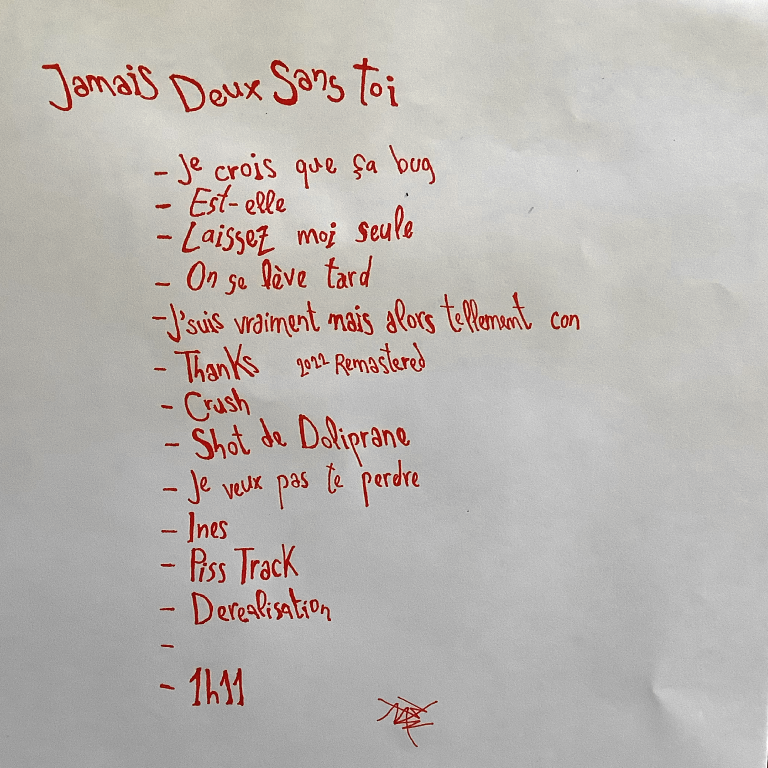 Jamais Deux Sans toi
- Je crois que ça bug
- Est-elle
- Laissez moi seule
- On se lève tard
- J'suis vraiment mais alors tellement con
- Thanks 2022 Remastered
- Crush
- Shot de Doliprane
- Je veux pas te perdre
- Ines
- Piss Track
- Derealisation
-
- 1h11